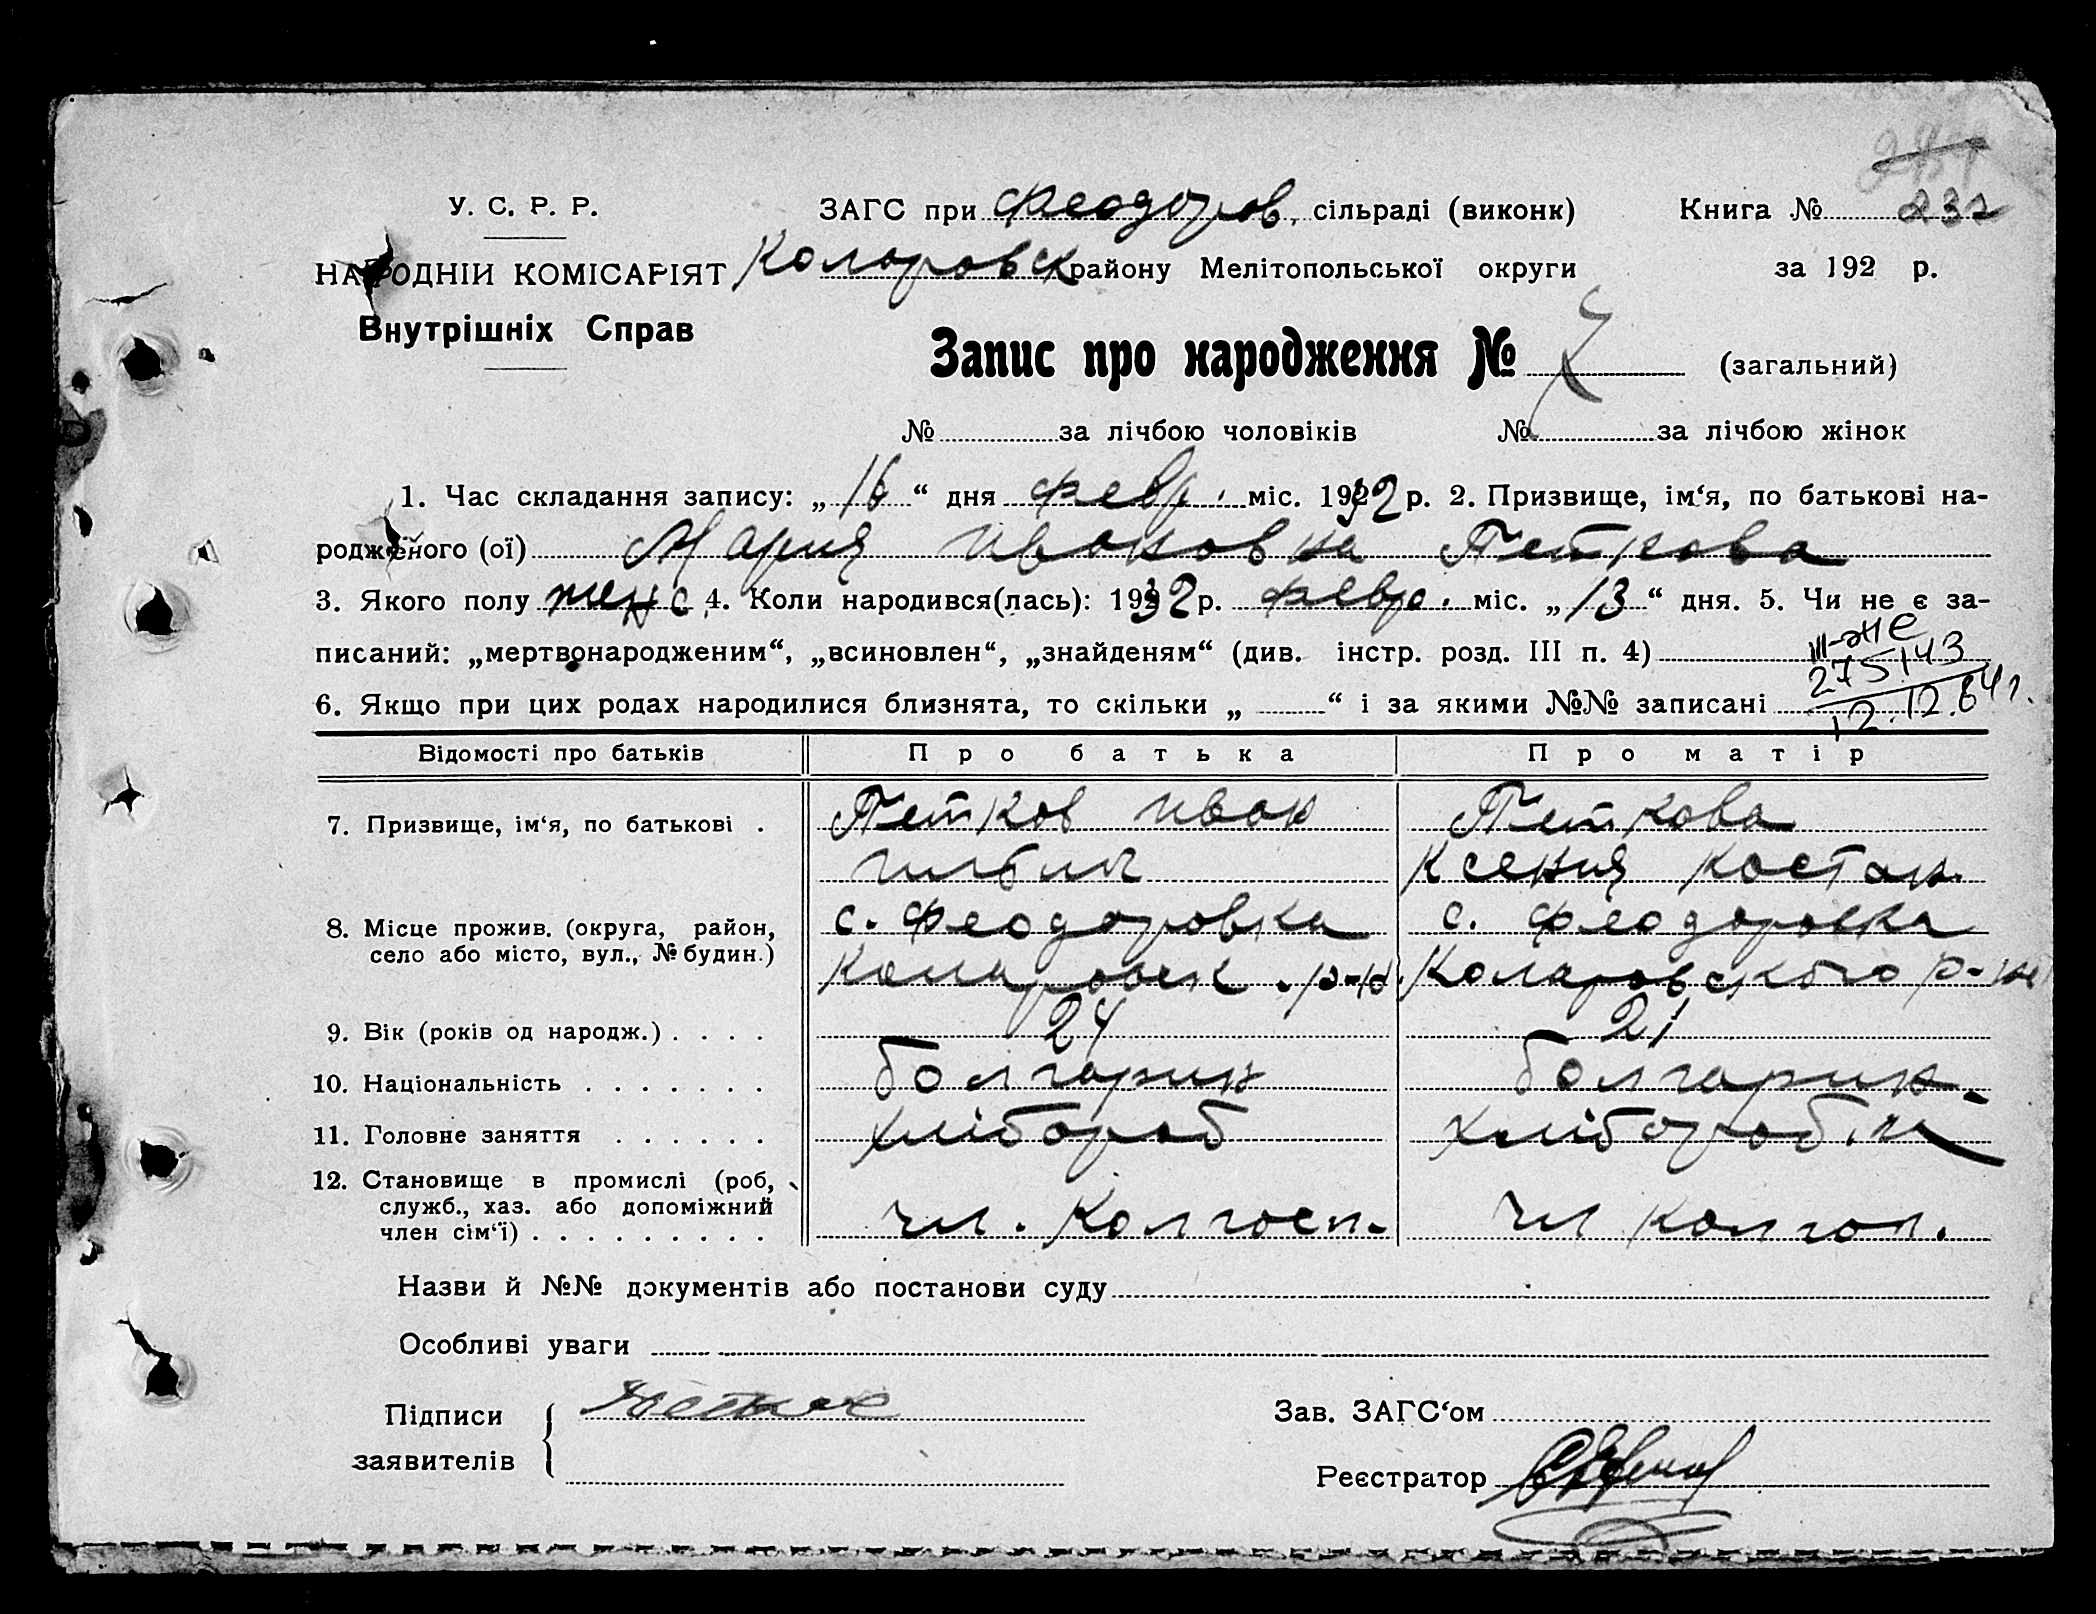 У. С. Р. Р.
НАРОДНІЙ КОМІСАРІЯТ
Внутрішніх Справ
ЗАГС при Феодоров. сільраді (виконк)
Коларовск району Мелітопольської округи
Книга № 232
за 192 р.
Запис про народження № 7 (загальний)
№ за лічбою чоловіків № за лічбою жінок
1. Час складання запису: „ 16 “ дня февр. міс. 1932 р. 2. Призвище, ім‘я, по батькові на-
родженого (ої) Мария Ивановна Петкова
3. Якого полу женс 4. Коли народився(лась): 1932 р. февр. міс. „ 13 “ дня. 5. Чи не є за-
писаний: „мертвонародженим“, „всиновлен“, „знайденям“ (див. інстр. розд. III п. 4) III-ЖС
275143
6. Якщо при цих родах народилися близнята, то скільки „ “ і за якими №№ записані 12.12.64 г.
Відомості про батьків Про батька Про матір
7. Призвище, ім‘я, по батькові . Петков Иван Петкова
Ксения Костан.
8. Місце прожив. (округа, район, с. Феодоровка с. Феодоровка
село або місто, вул., № будин.) Коларовск. р-н. Коларовского р-на
9. Вік (років од народж.) . . . . 24 21
10. Національність . . . . . . . болгарин болгарин.
11. Головне заняття . . . . . . хлібороб хлібороб.
12. Становище в промислі (роб,
служб., хаз. або допоміжний
член сім‘ї) . . . . . . . . . чл. колгосп. чл колгоп.
Назви й №№ документів або постанови суду
Особливі уваги
Підписи
заявителів
Зав. ЗАГС‘ом
Реєстратор